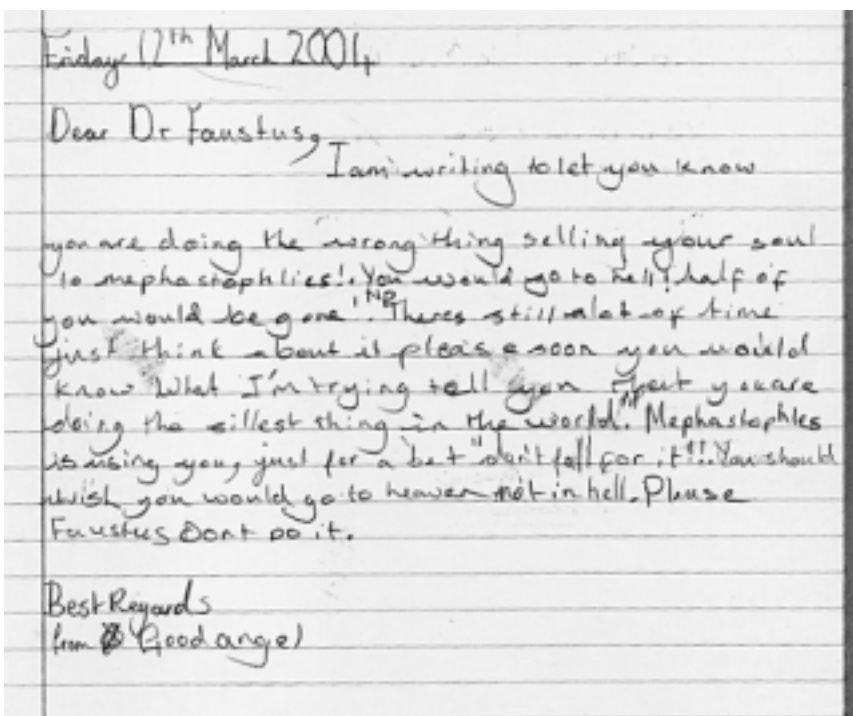 Friday 12th March 2004
Dear Dr Faustus,
I am writing to let you know
you are doing the wrong thing selling your soul
to mephastophlies!. You would go to hell! half of
you would be gone!". Theres still alot of time
just think about it please soon you would
know what I'm trying tell you that you are
doing the sillest thing in the world!" Mephastophles
is using you, just for a bet "don't fall for it"!!. You should
wish you would go to heaven not in hell. Please
Faustus Dont Do it.
Best Regards
from Good angel